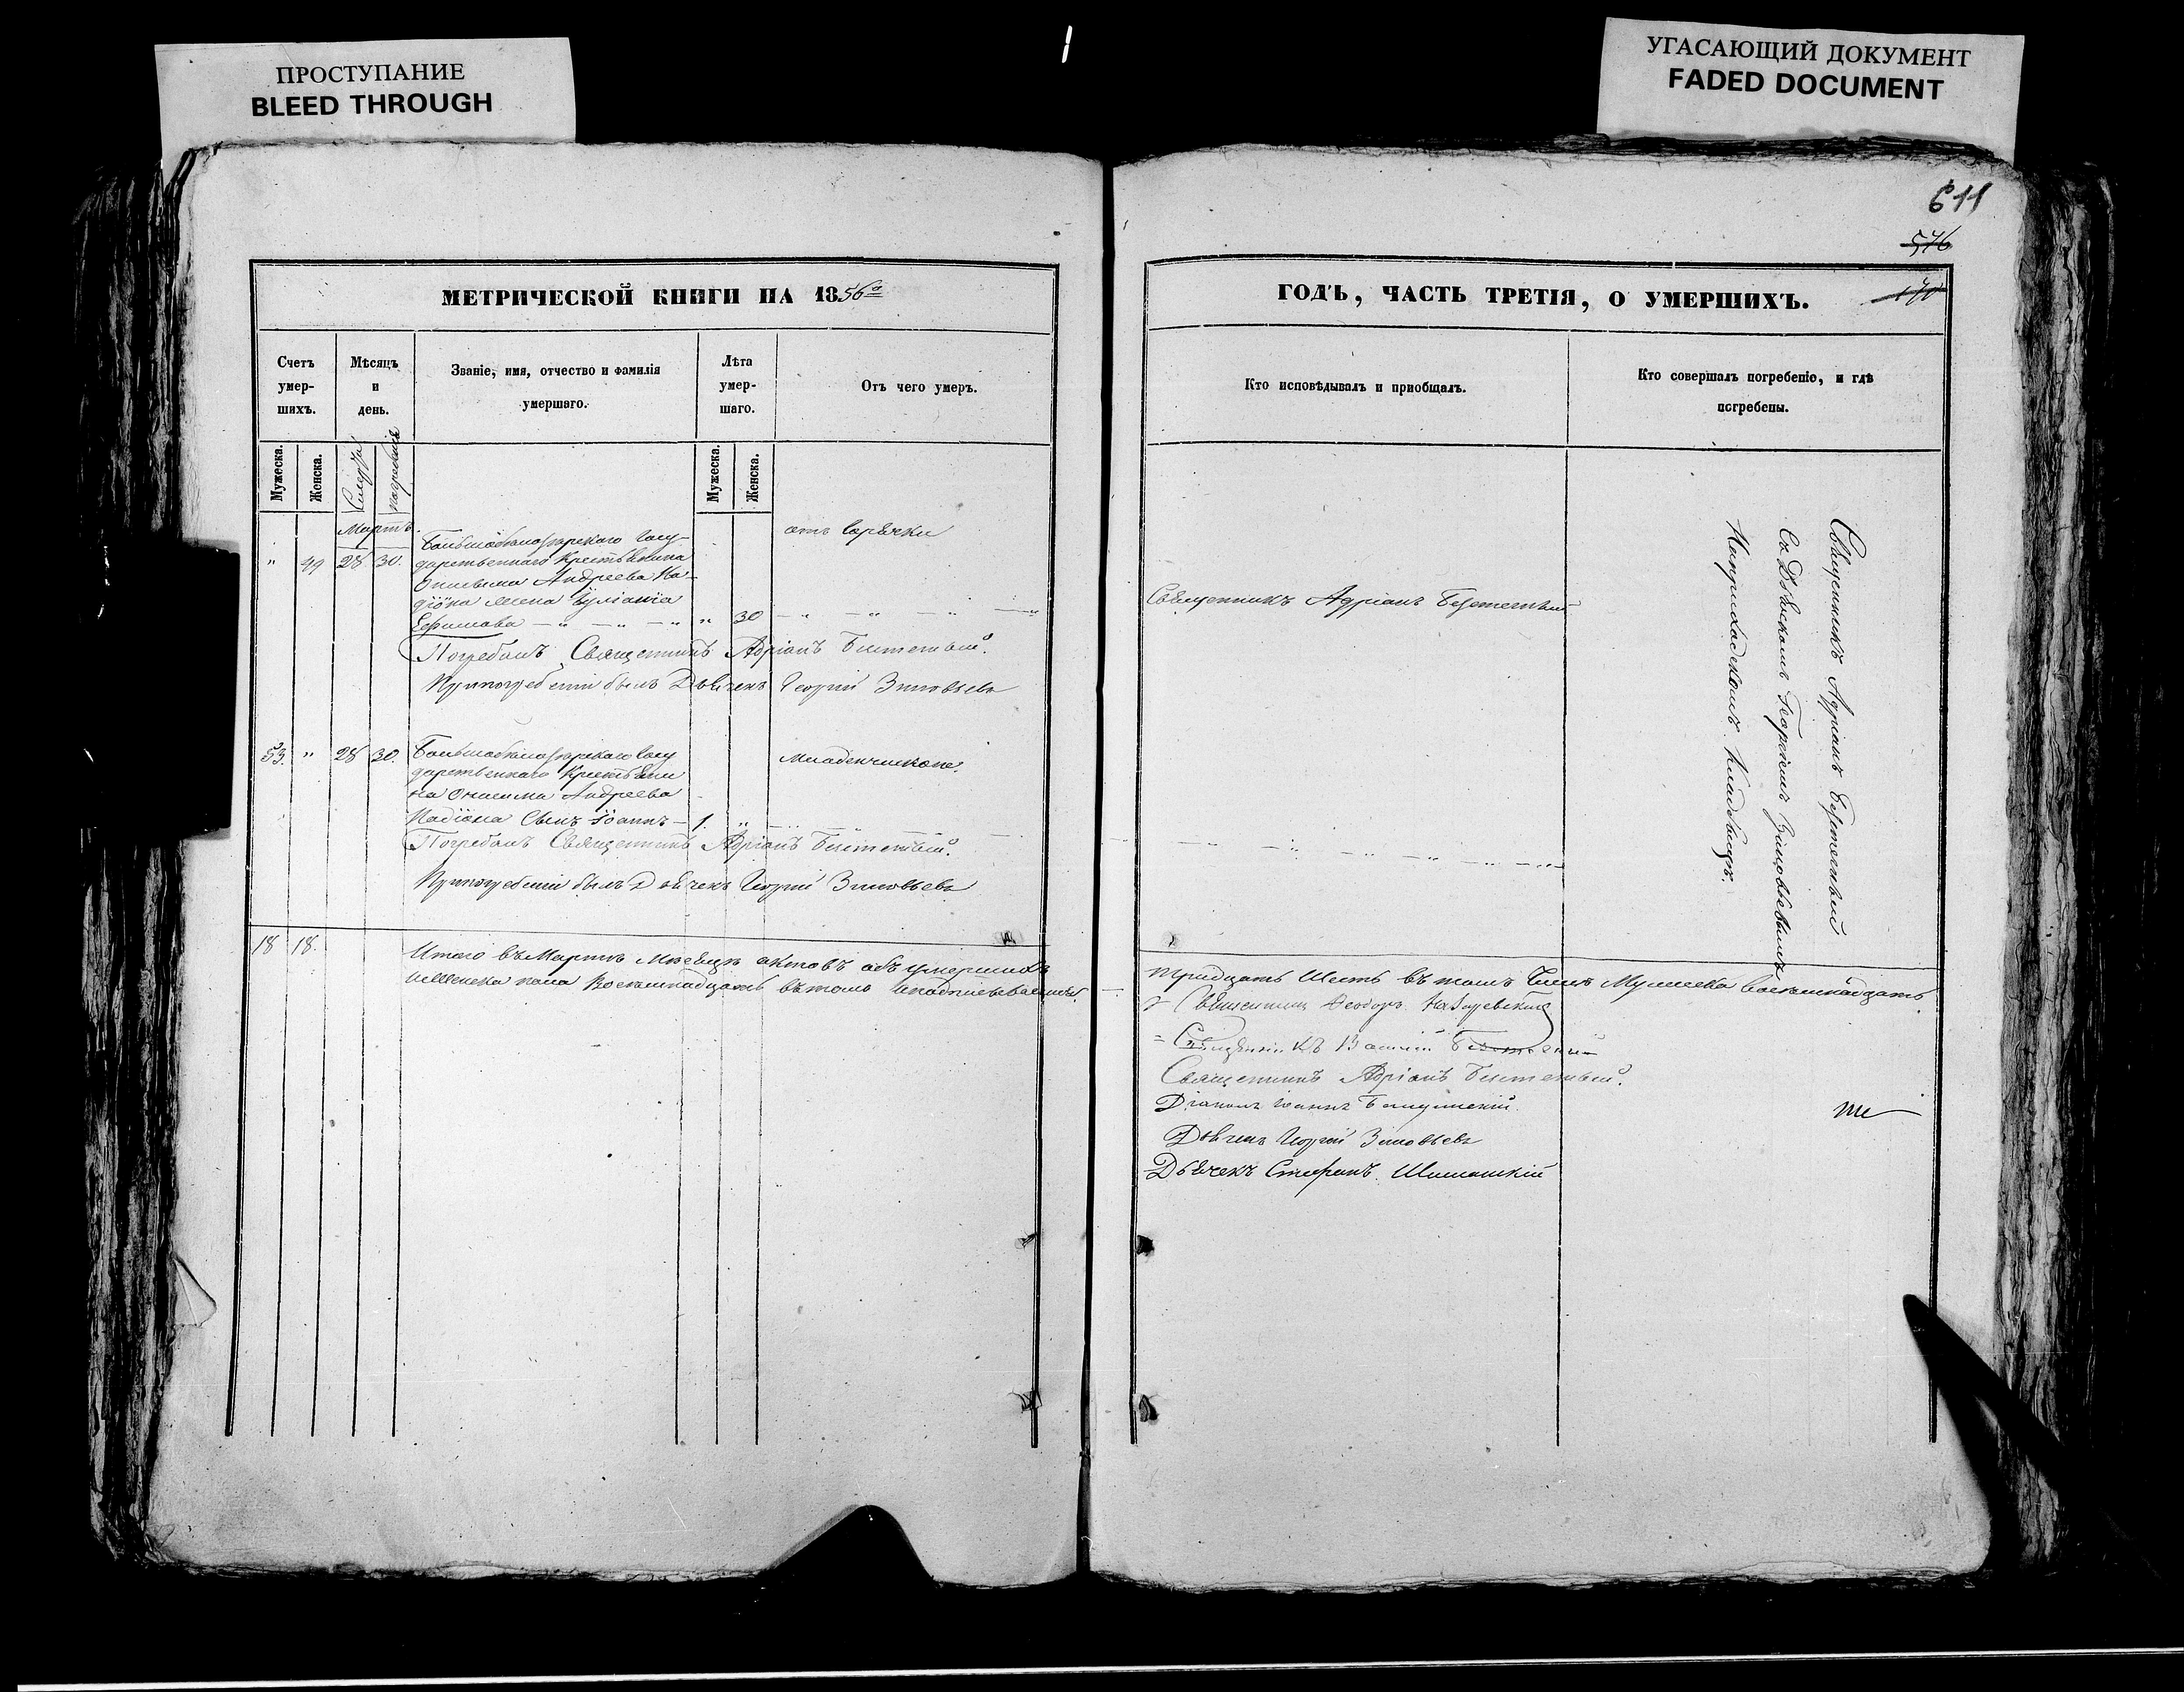 ПРОСТУПАНИЕ
BLEED THROUGH
УГАСАЮЩИЙ ДОКУМЕНТ
FADED DOCUMENT
611
576
170
МЕТРИЧЕСКОЙ КНИГИ НА 1856й
Счетъ умер-шихъ.
Мѣсяцъ и день.
Званіе, имя, отчество и фамилія умершаго.
Лѣта умер-шаго.
Отъ чего умеръ.
Мужеска.
Женска.
Смерти
погребенія
Мужеска.
Женска.
Мартъ.
" 49 28 30.
государственнаго Крестьянина
Онисима Андреева На-
діона жена Іуліанія
Ефимова " 30
отъ горячки
Погребалъ Священникъ Адріанъ
При погребеніи былъ Дьячекъ Георгій Зиновьевъ
53. " 28 30.
государственнаго Крестьяни
на Онисима Андреева
Надіона Сынъ Іоаннъ 1. "
младенческой.
Погребалъ Священникъ Адріанъ
При погребеніи былъ Дьячекъ Георгій Зиновьевъ
18 18.
Итого въ Мартѣ Мѣсяцѣ актовъ объ умершихъ
женска пола Восемнадцать въ томъ
ГОДЪ, ЧАСТЬ ТРЕТІЯ, О УМЕРШИХЪ.
Кто исповѣдывалъ и пріобщалъ.
Кто совершалъ погребеніе, и гдѣ погребены.
Священникъ Адріанъ
Священникъ Адріанъ
Съ Дьячкомъ Георгіемъ Зиновьевымъ
На приходскомъ кладбищѣ.
тридцать Шесть въ томъ Числѣ Мужеска восемнадцать
Священникъ Ѳеодоръ
Священникъ Василій
Священникъ Адріанъ
Діаконъ Іоаннъ
Дьячекъ Георгій Зиновьевъ
Дьячекъ Стефанъ